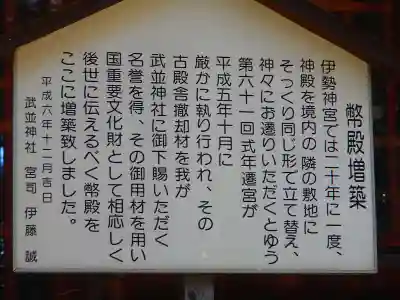 幣殿増築
伊勢神宮では二十年に一度、
神殿を境内の 隣の敷地に
そっくり同じ形で立て替え、
神々にお遷りいただくとゆう
第六十一回 式年遷宮が
平成五年十月に
厳かに執り行われ、その
古殿舎撤却材を我が
武並神社に御下賜いただく
名誉を得、その御用材を用い
国重要文化財として相応しく
後世に伝えるべく幣殿を
ここに増築致しました。
平成六年十二月吉日
武並神社 宮司 伊藤 誠